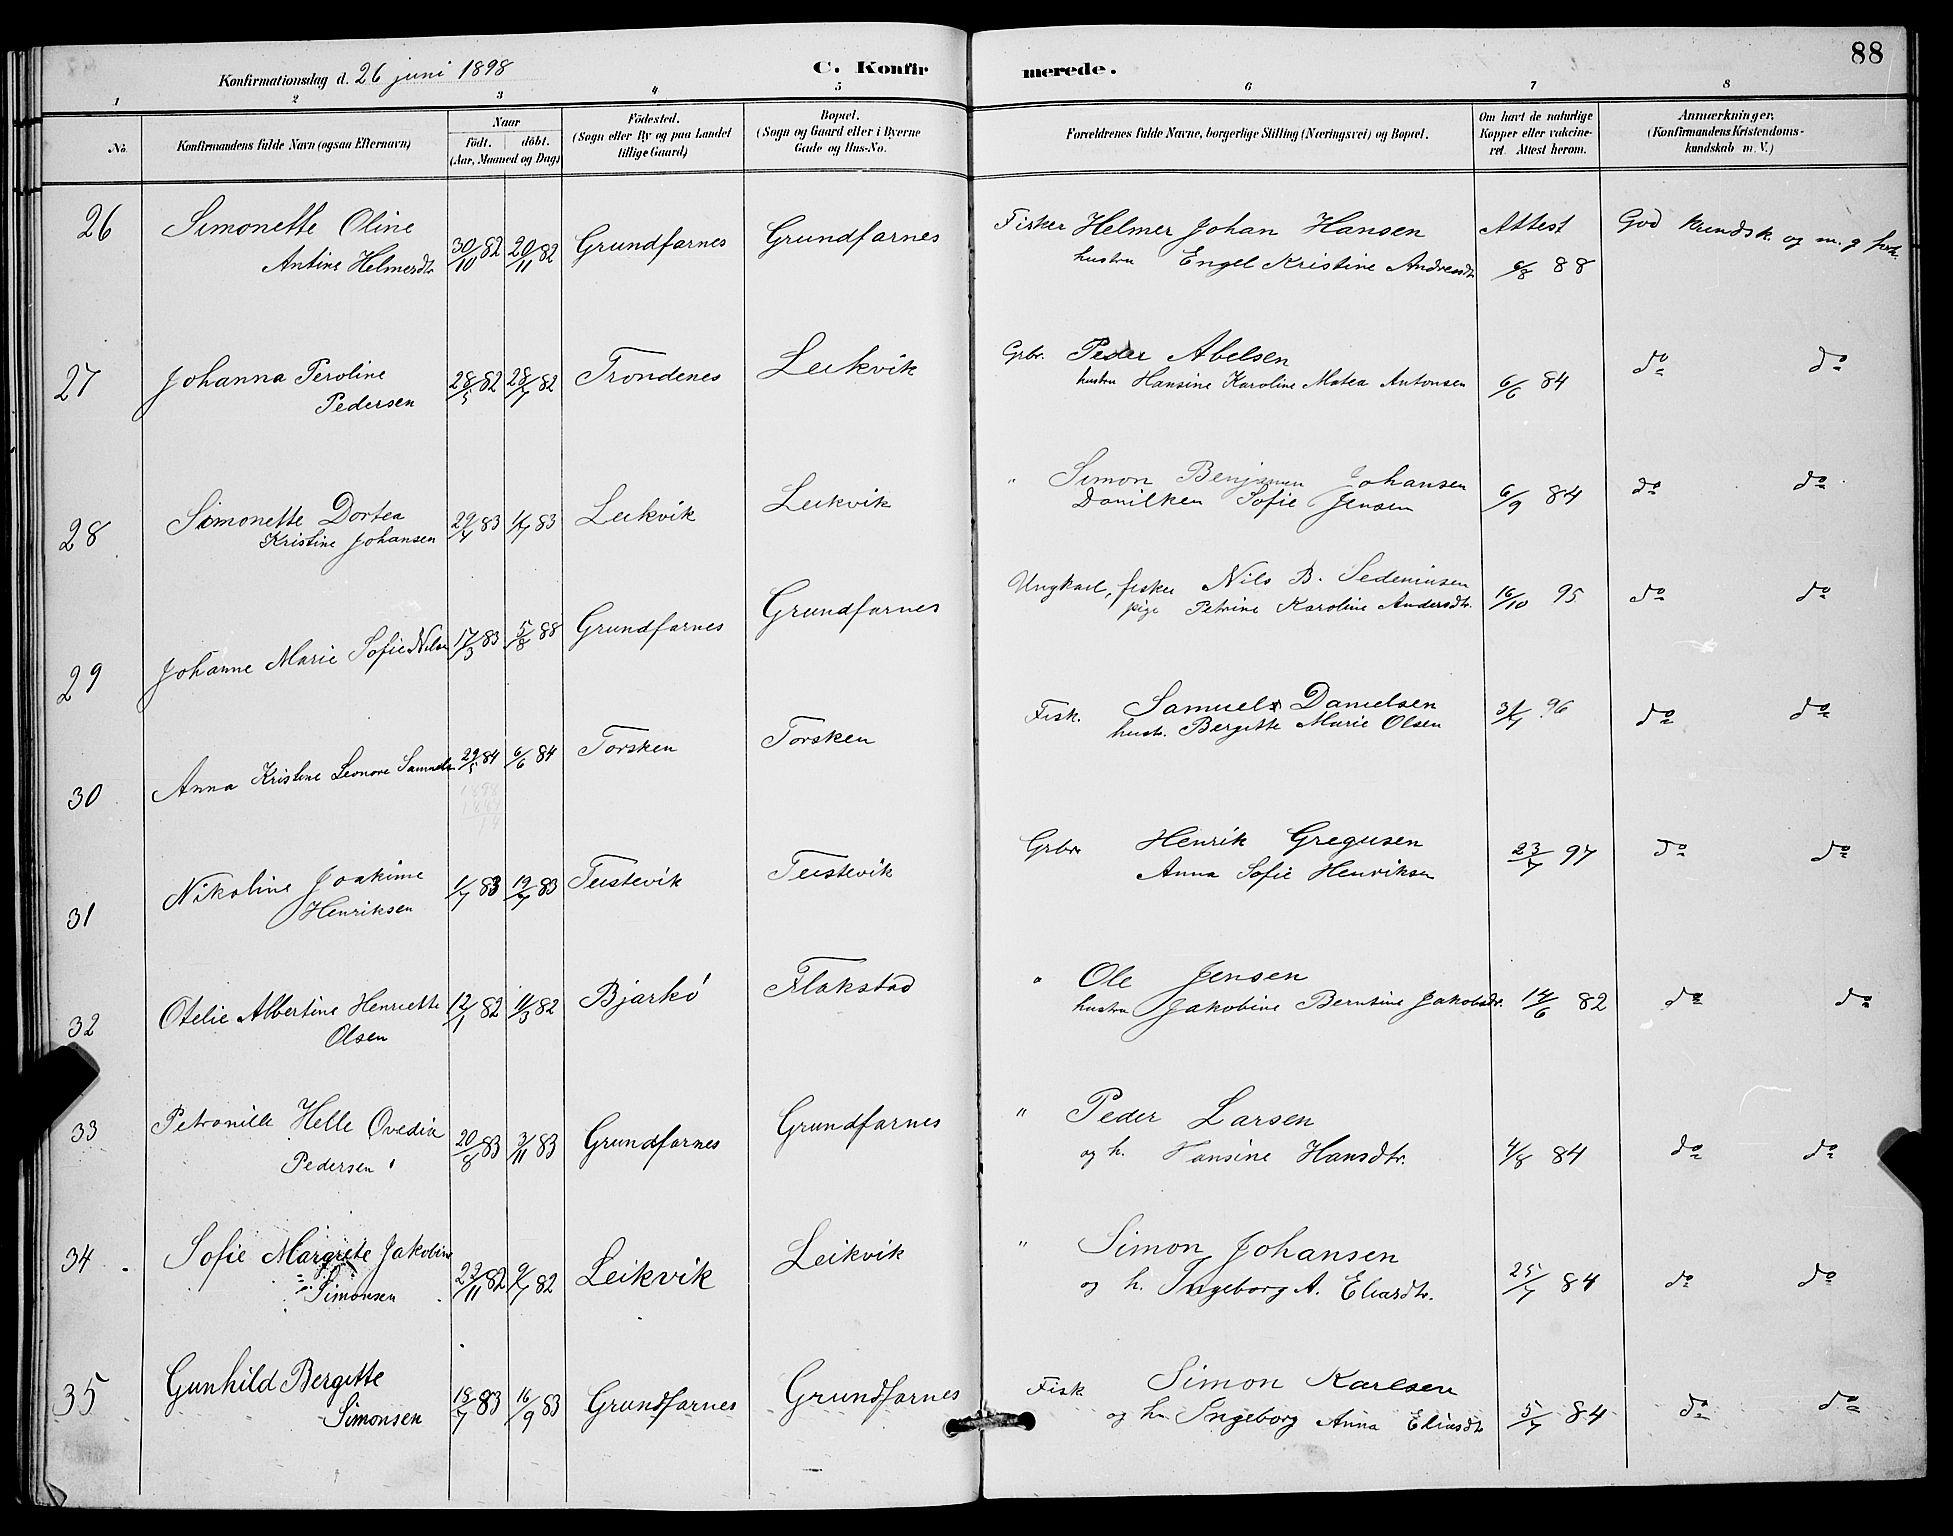 88
Konfirmationsdag d. 26 juni 1898
C. Konfirmerede.
1 2 3 4 5 6 7 8
No.
Konfirmandens fulde Navn (ogsaa Efternavn)
Naar
født. døbt.
(Aar, Maaned og Dag)
Födested.
(Sogn eller By og paa Landet
tillige Gaard)
Bopæl.
(Sogn og Gaard eller i Byerne
Gade og Hus-No.
Forældrenes fulde Navne, borgerlige Stilling (Næringsvei) og Bopæl.
Om havt de naturlige
Kopper eller vakcine-
ret. Attest herom.
Anmærkninger,
(Konfirmandens Kristendoms-
kundskab m. V.)
26 Simonette Oline 30/10 82 20/11 82 Grundfarnes Grundfarnes Fisker Helmer Johan Hansen Attest God kundsk. og m. g
Antine Helmersdtr. hustru Engel Kristine Andreasdtr 6/8 88
27 Johanna Peroline 28/5 82 28/7 82 Trondenes Leikvik Grbr. Peder Abelsen do do
Pedersen hustru Hansine Karoline Matea Antonsen 6/6 84
28 Simonette Dortea 29/4 83 1/7 83 Leikvik Leikvik " Simon Benjamin Johansen 6/9 84 do do
Kristine Johansen Danilken Sofie Jensen
29 Johanne Marie Sofie Nilsen 17/3 83 5/8 88 Grundfarnes Grundfarnes Ungkarl, fisker Nils B. Sedeniusen 16/10 95 do do
pige Petrine Karoline Andersdtr.
30 Anna Kristine Leonore Samuels. 29/5 84 6/6 84 Torsken Torsken Fisk. Samuel Danielsen 31/7 96 do do
hust. Bergitte Marie Olsen
31 Nikoline Joakime 1/7 83 19/7 83 Teistevik Teistevik Grbr. Henrik Gregusen 23/7 97 do do
Henriksen Anna Sofie Henriksen
32 Otelie Albertine Henriette 12/1 82 11/3 82 Bjarkö Flakstad " Ole Jensen 14/6 82 do do
Olsen hustru Jakobine Berntine Jakobsdtr.
33 Petronille Helle Ovedia 20/8 83 3/11 83 Grundfarnes Grundfarnes " Peder Larsen 4/8 84 do do
Pedersen og h. Hansine Hansdtr.
34 Sofie Margrete Jakobine /11 82 9/7 82 Leikvik Leikvik " Simon Johansen 25/7 84 do do
Simonsen og h. Ingeborg A. Eliasdtr.
35 Gunhild Bergitte 18/7 83 16/9 83 Grundfarnes Grundfarnes Fisk Simon Karlsen 5/7 84 do do
Simonsen og h. Ingeborg Anna Eliasdtr